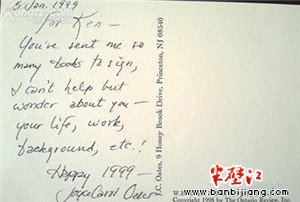 5 Jan. 1999
For Ken —
You've sent me so
many books to sign,
I can't help but
wonder about you —
your life, work,
background, etc.!
Happy 1999 —
Joyce Carol Oates
J.C. Oates, 9 Honey Brook Drive, Princeton, NJ 08540
半壁江
Copyright 1998 by The Ontario Review, Inc.
www.banbijiang.com